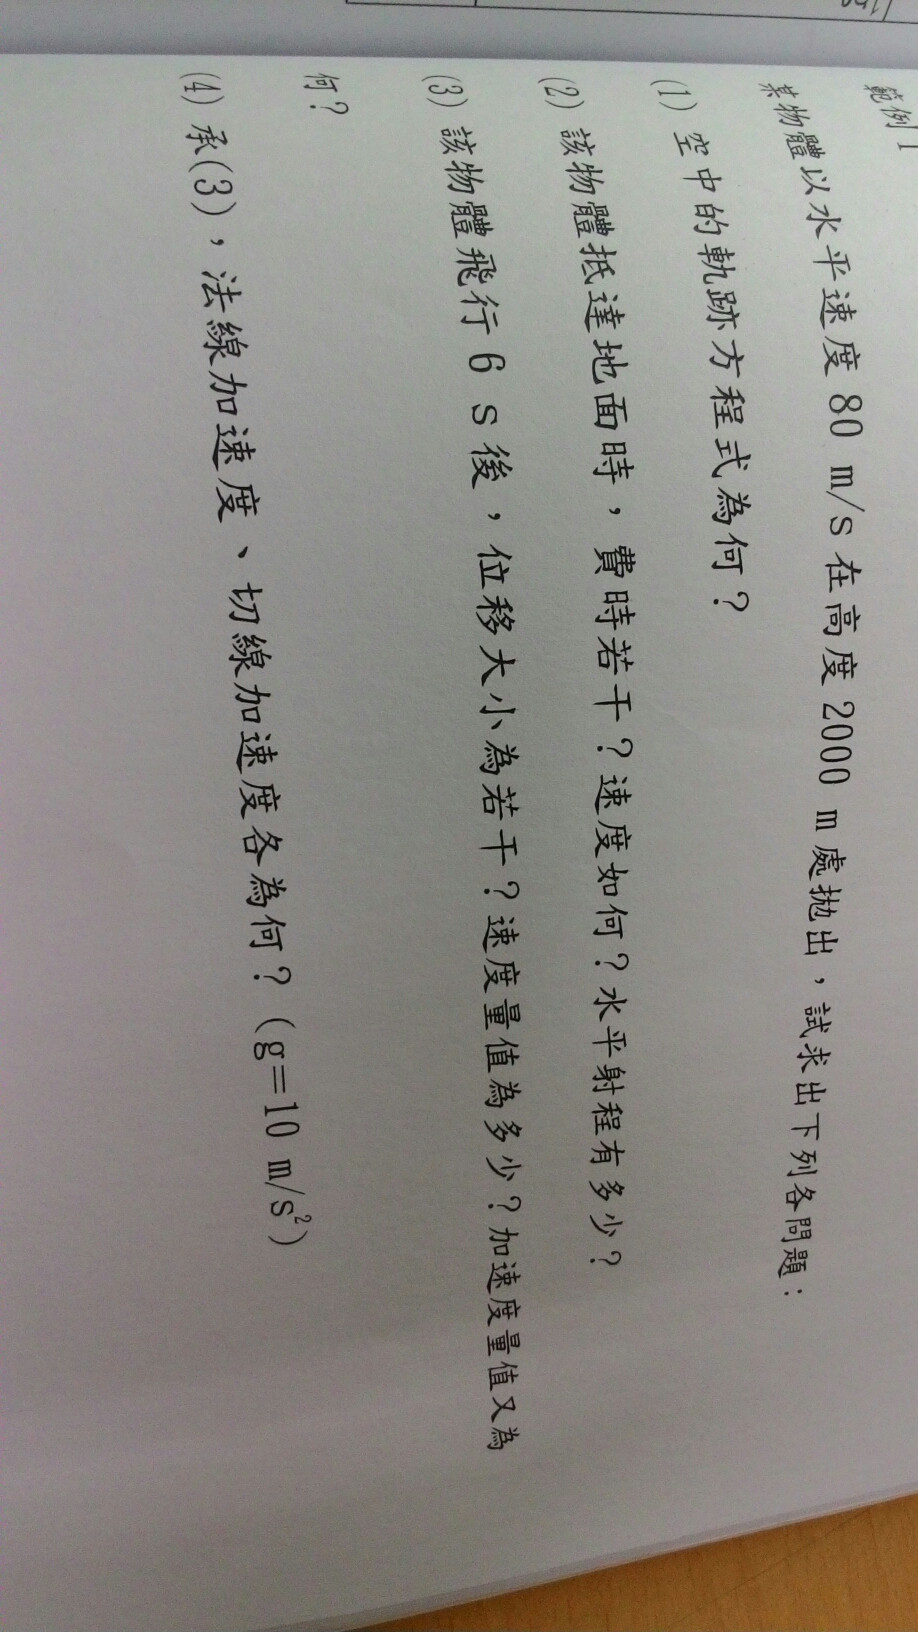 範例 1
某物體以水平速度 80 m/s 在高度 2000 m 處拋出，試求出下列各問題：
(1) 空中的軌跡方程式為何？
(2) 該物體抵達地面時，費時若干？速度如何？水平射程有多少？
(3) 該物體飛行 6 S 後，位移大小為若干？速度量值為多少？加速度量值又為
何？
(4) 承(3)，法線加速度、切線加速度各為何？(g=10 m/s²)